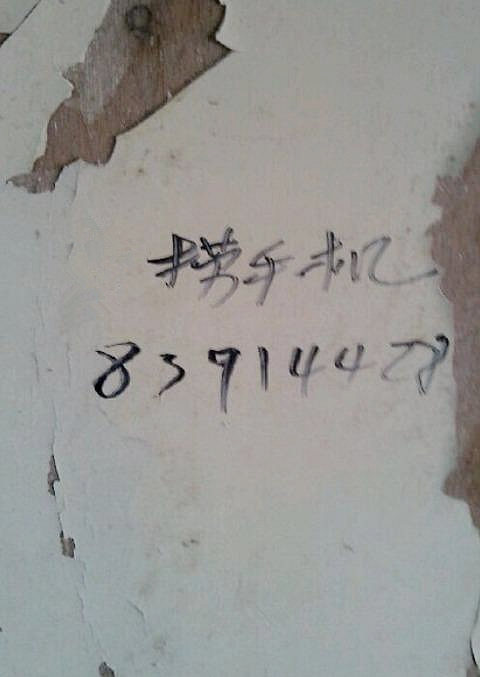 捞手机
83914428